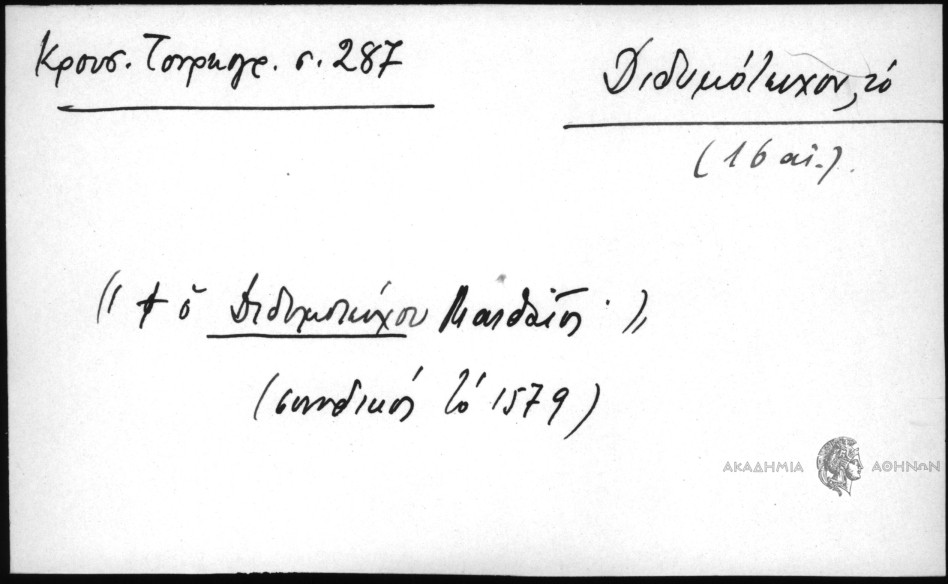 Κρουσ. Τουρκογρ. σ. 287
Διδυμότειχον, τό
(16 αἰ.).
« † ὁ Διδυμοτείχου Ματθαῖος »
(συνοδικός τό 1579)
ΑΚΑΔΗΜΙΑ ΑΘΗΝΩΝ